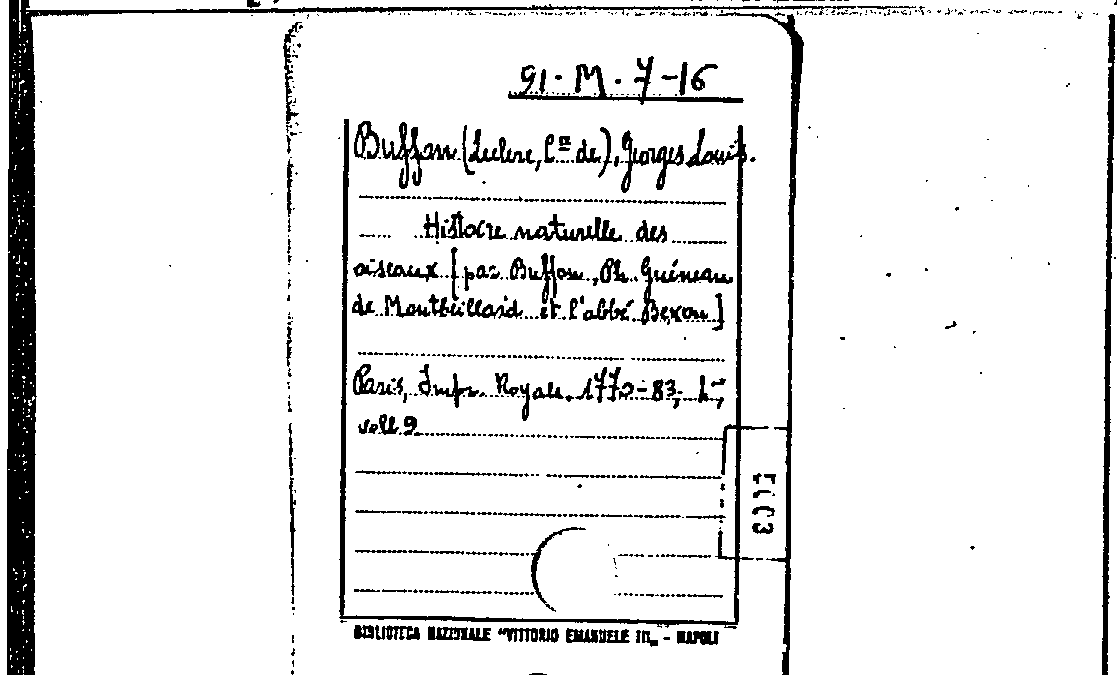 91-M-7-16
Buffon (Leclerc, Cte de), Georges Louis.
Histoire naturelle des
oiseaux [par Buffon, Ph. Guéneau
de Montbeillard et l'abbé Bexon]
Paris, Impr. Royale. 1770-83;
voll 9
BIBLIOTECA NAZIONALE "VITTORIO EMANUELE III„ - NAPOLI